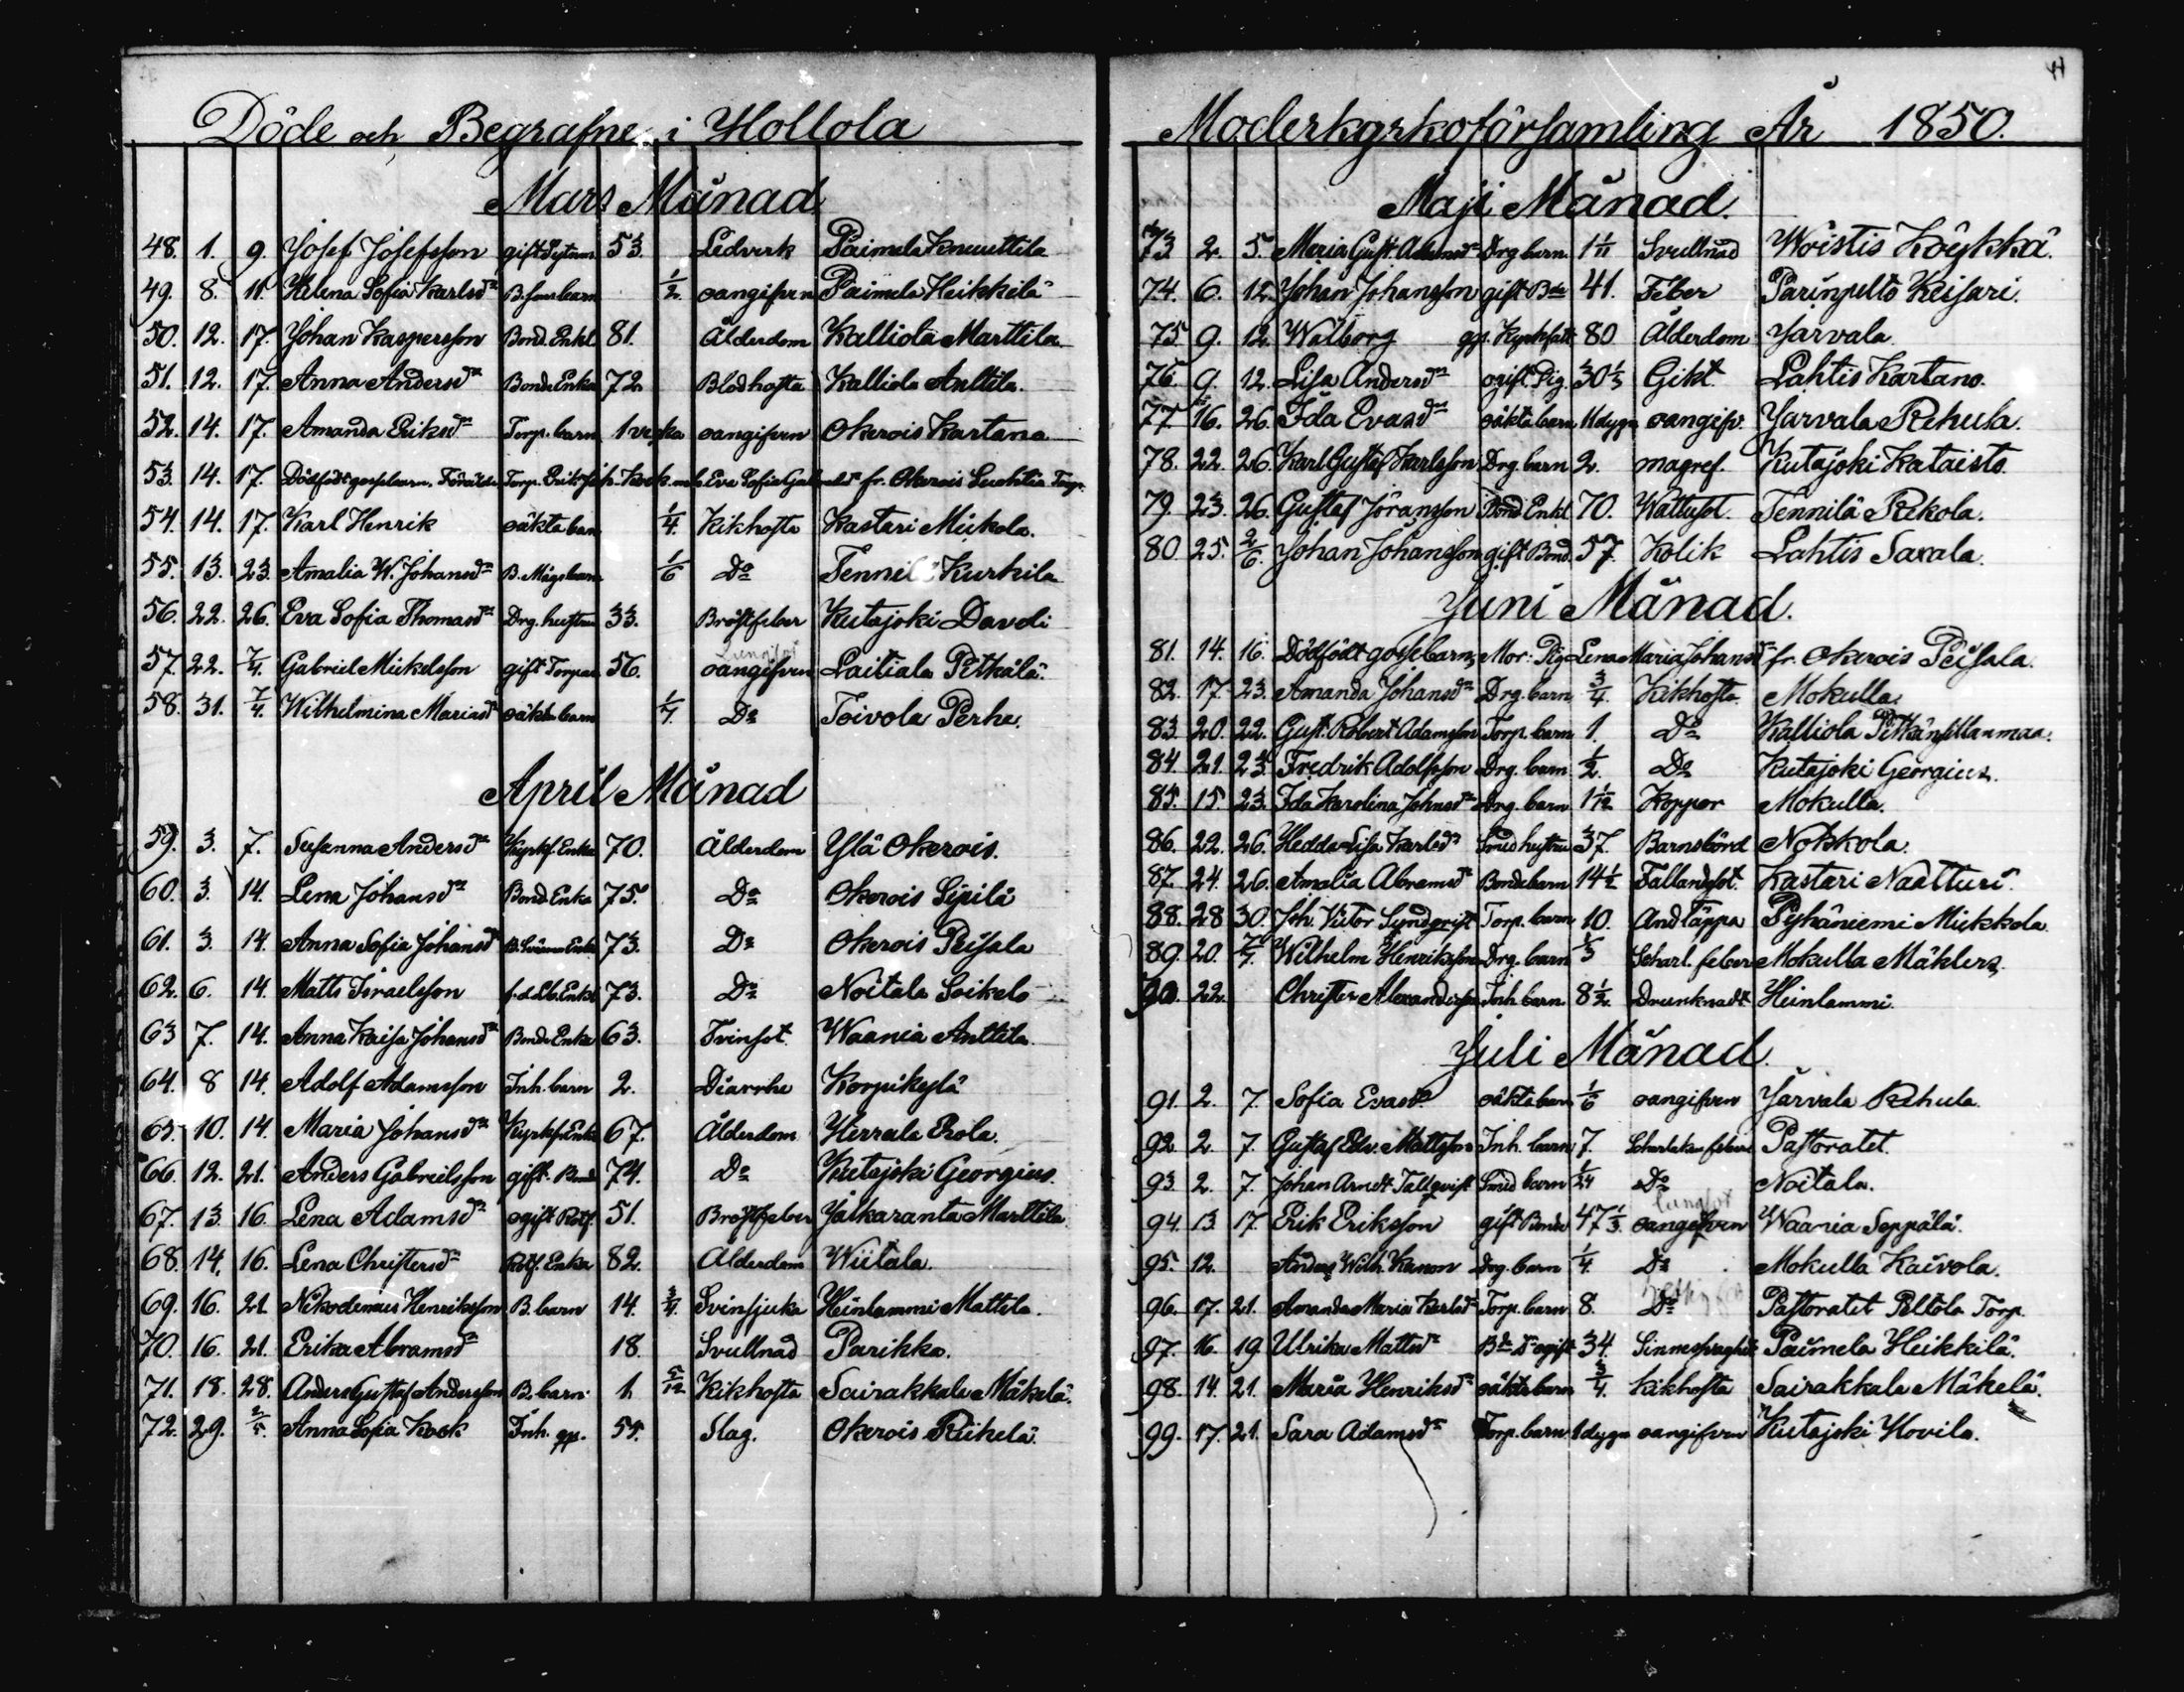 Döde och Begrafne i Hollola
Mars Månad
48. 1. 9. Josef Josefsson gift Sytnm 53. Ledverk Paimela Knuuttila
49. 8. 11. Helena Sofia Karlsdr B.sons barn 1/2 oangifven Paimela Heikkilä
50. 12. 17. Johan Kaspersson Bond. Enkl. 81. Ålderdom Kalliola Marttila
51. 12. 17. Anna Andersdr Bonde Enka 72. Blodhosta Kalliola Anttila.
52. 14. 17. Amanda Eriksdr Torp. barn 1 vecka oangifven Okerois Kartano
53. 14. 17. Dödfödt gossebarn. Föräldr. Torp. Erik Joh. Kock m. Eva Sofia fr. Okerois Torp.
54. 14. 17. Karl Henrik oäkta barn 1/4. Kikhosta Kastari Mickola.
55. 13. 23. Amalia W. Johansdr B. Mågs barn 1/6 Do Tennilä Kurkila
56. 22. 26. Eva Sofia Thomasdr Drg. hustru 33. Bröstfeber Kutajoki Davdi
57. 22. 7/4. Gabriel Mickelsson gift Torpar 56. Lungsot oangifven Laitiala Pitkälä.
58. 31. 7/4. Wilhelmina Mariasdr oäkta barn 1/7 Do Toivola Perhe.
April Månad
59. 3. 7. Susanna Andersdr Kyrkf. Enka 70. Ålderdom Ylä Okerois.
60. 3. 14. Lena Johansdr Bond. Enka 75. Do Okerois Sipilä
61. 3. 14. Anna Sofia Johansdr Enka 73. Do Okerois Peisala
62. 6. 14. Matts Israelsson Enkl 73. Do Noitala Soikelo
63 7. 14. Anna Kaisa Johansdr Bonde Enka 63. Tvinsot Waania Anttila
64. 8 14. Adolf Adamsson Inh. barn 2. Diarrhe Korpikylä
65. 10. 14. Maria Johansdr Kyrkf. Enka 67. Ålderdom Herrala Erola.
66. 12. 21. Anders Gabrielsson gift. Bond. 74. Do Kutajoki Georgius.
67. 13. 16. Lena Adamsdr ogift Rotf. 51. Bröstfeber Jaikaranta Marttila
68. 14. 16. Lena Christersdr Rotf. Enka 82. Ålderdom Wiitala.
69. 16. 21. Nikodemus Henriksson B. barn 14. 3/4. Svinsjuka Heinlammi Mattila.
70. 16. 21. Erika Abramsdr 18. Svullnad Parikka.
71. 18. 28. Anders Gustaf Andersson B. barn. 1. 5/12 Kikhosta Sairakkala Mäkelä.
72. 29. 2/5. Anna Sofia Kock Inh. gp. 55. Slag. Okerois Riihelä.
Moderkyrkoförsamling År 1850.
Maji Månad.
73. 2. 5. Maria Gust. Drg barn 1 Svullnad Woistis Köykkä.
74. 6. 12. Johan Johansson gift Bde 41. Feber Parinpelto Keisari.
75. 9. 12. Walborg gp. Kyrkfatt 80 Ålderdom Jarvala
76. 9. 12. Lisa Andersdr ogift. Pig. 30 1/3 Gikt. Lahtis Kartano.
77. 16. 26. Ida Evasdr oäkta barn 11 dygn oangifv. Jarvala Rehula.
78. 22. 26. Karl Gustaf Karlsson Drg. barn 2. magref. Kutajoki Kataisto.
79. 23. 26. Gustaf Joransson Bond Enkl. 70. Wattusot. Tennilä Rekola.
80. 25. 2/6. Johan Johansson gift Bond. 57. Kolik Lahtis Saxala.
Juni Månad.
81. 14. 16. Dödfödt gossebarn, Mor: Pig Lena Maria Johansdr fr. Okerois Peisala.
82. 17. 23. Amanda Johansdr Drg. barn 3/4. Kikhosta. Mokulla.
83. 20. 22. Gust. Robert Adamsson Torp. barn 1. Do Kalliola Pitkänsillanmaa.
84. 21. 23. Fredrik Adolfsson Drg. barn 1/2. Do Kutajoki Georgius.
85. 15 23. Ida Karolina Johnsdr Drg. barn 1 1/12 Koppor Mokulla.
86. 22. 26. Hedda Lisa Karlsdr Smed hustru 37. Barnsbörd Notskola.
87. 24. 26. Amalia Abramsdr Bonde barn 14 1/2 Fallandsot. Kastari Naatturi.
88. 28 30. Joh. Victor Syndqvist Torp. barn 10. Andtäppa Pyhäniemi Mickkola.
89. 20. 7/7. Wilhelm Henriksson Drg. barn 1/3 Scharl. feber Mokulla Mäklers.
90. 22. Christer Alexandersson Inh. barn 8 1/2. Drunknadt Heinlammi.
Juli Månad.
91. 2. 7. Sofia Evasdr. oäkta barn 1/6 oangifven Jarvala Rehula.
92. 2. 7. Gustaf Edv. Mattsson Inh. barn 7. Scharlakansfeber Pastoratet.
93. 2. 7. Johan Arndt Tallqvist Smed barn 1/24 Do Noitala.
94. 13. 17. Erik Eriksson gift Bonde 47 1/3. Lungsot oangifven Waania Seppälä.
95. 12. Anders Wilh. Kanon Drg. barn 1/4. Do Mokulla Kaivola.
96. 17. 21. Amanda Maria Karlsdr Torp. barn 8. Do Pastoratet Peltola Torp.
97. 16. 19 Ulrika Mattsdr Bde Dr ogift 34. Sinnessvaghet Paimela Heikkilä.
98. 14. 21. Maria Henriksdr oäkta barn 3/4. Kikhosta Sairakkala Mäkelä.
99. 17. 21. Sara Adamsdr Torp. barn 1 dygn oangifven Kutajoki Hovila.